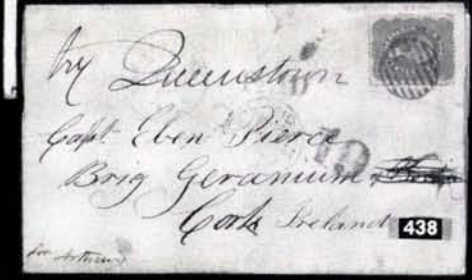 Queenstown
Capt Eben Pierce
Brig Geranium
Cork Ireland
438